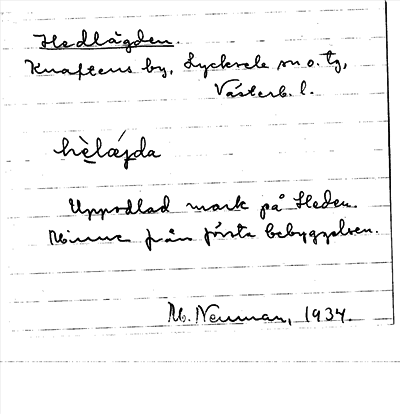 Hedlägden.
Knaftens by, Lycksele sn o. tg,
Västerb. l.
hèlǽjda
Uppodlad mark på Heden.
Minne från första bebyggelsen.
M. Neuman, 1934.